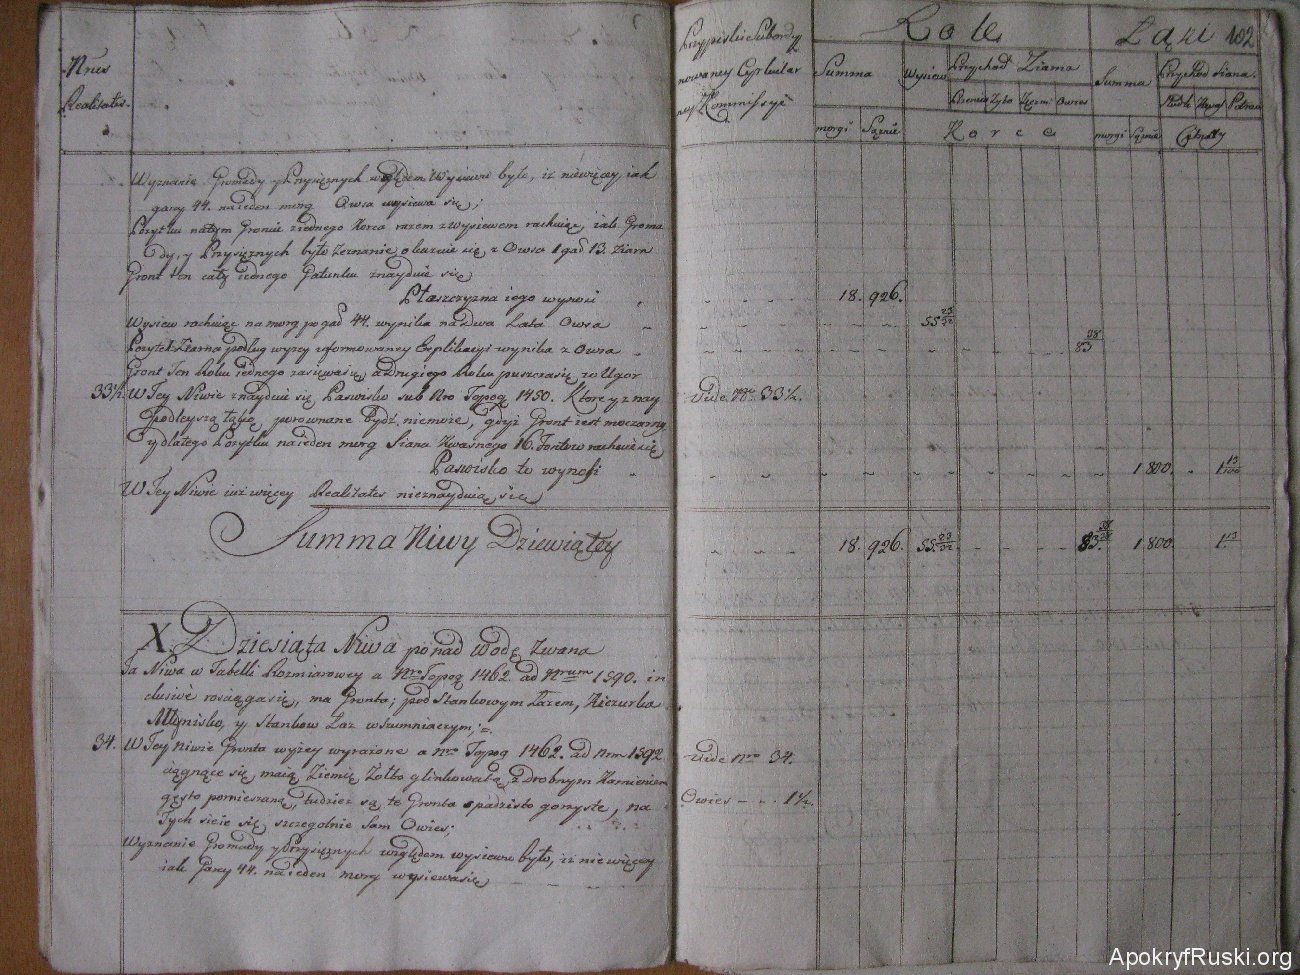 Nrus
Realitates.
Wyznanie Gromady y Przysięznych względem Wysiewu było, iż niewięcey, iak
garcy 44. na ieden morg Owsa wysiewa się;
Pozytku na tym Groncie z iednego Korca razem z wysiewem rachuiąc, iak Groma
dy, y Przysięznych było zeznanie okazuie się z Owsa 1 gad 13. Ziarn
Gront ten cały iednego Gatunku znayduie się
Płaszczyzna iego wynosi
18. 926.
Wysiew rachuiąc na morg po gad 44. wynika na dwa Lata Owsa
55 23/32
Pozytek Ziarna podług wyzey uformowaney Explikacyi wynika z Owsa
83 28
Gront ten Roku iednego zasiewa się, a drugiego Roku puszcza się w Ugor
33½. W Tey Niwie znayduie się Pastwisko sub Nro Topog 1450. Ktore z nay
podleyszą łąką porownane bydź niemoże, gdyż Gront iest moczarny
y dlatego Pozytku na ieden morg Siana Kwasnego 16. Fontow rachuie się
Pastwisko to wynosi
W Tey Niwie iuż więcey Realitates nieznayduią się
Summa Niwy Dziewiątey
X. Dziesiąta Niwa ponad Wodę Zwana
Ta Niwa w Tabelli Rozmiarowey a Nro Topog 1462 ad Nrum 1590. in
clusive rosciąga się, ma Gronta; pod Stankowym Łazem,
Młynisko, y Stankow Łaz w Szumniaczym;
34. W Tey Niwie Gronta wyżey wyrażone a Nro Topog 1462. ad Nrm 1592
ciągnące się, maią Ziemię Zołto glinkowatą, z drobnym Kamieniem
gęsto pomieszaną, tudzież są te Gronta spadzisto gorzyste, na
Tych sieie się szczegolnie Sam Owies;
Wyznanie Gromady y Przysięznych względem wysiewu było, iż nie więcey
iak Garcy 44. na ieden morg wysiewa się
Przypiski Subordy
nowaney Cyrkular
ney Kommissyi
Role
Łąki 102
Summa
Wysiew
Przychod Ziarna
Summa
Przychod Siana.
Pszenica Zyto Ięczm: Owies
Słodk Kwaś Potraw
morgi Sążnie
Korce
morgi Sążnie
Cetnary
Vide Nro 33½.
1 800. 1 13/100
18. 926. 55 23/32 83 28 1 800. 1 13
Vide Nro 34.
Owies - - - 1½.
ApokryfRuski.org